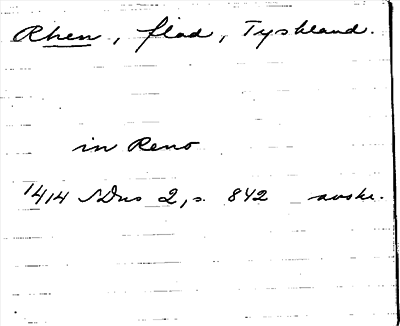 Rhen, flod, Tyskland.
in Reno
1414 SDns 2, s. 842 avskr.